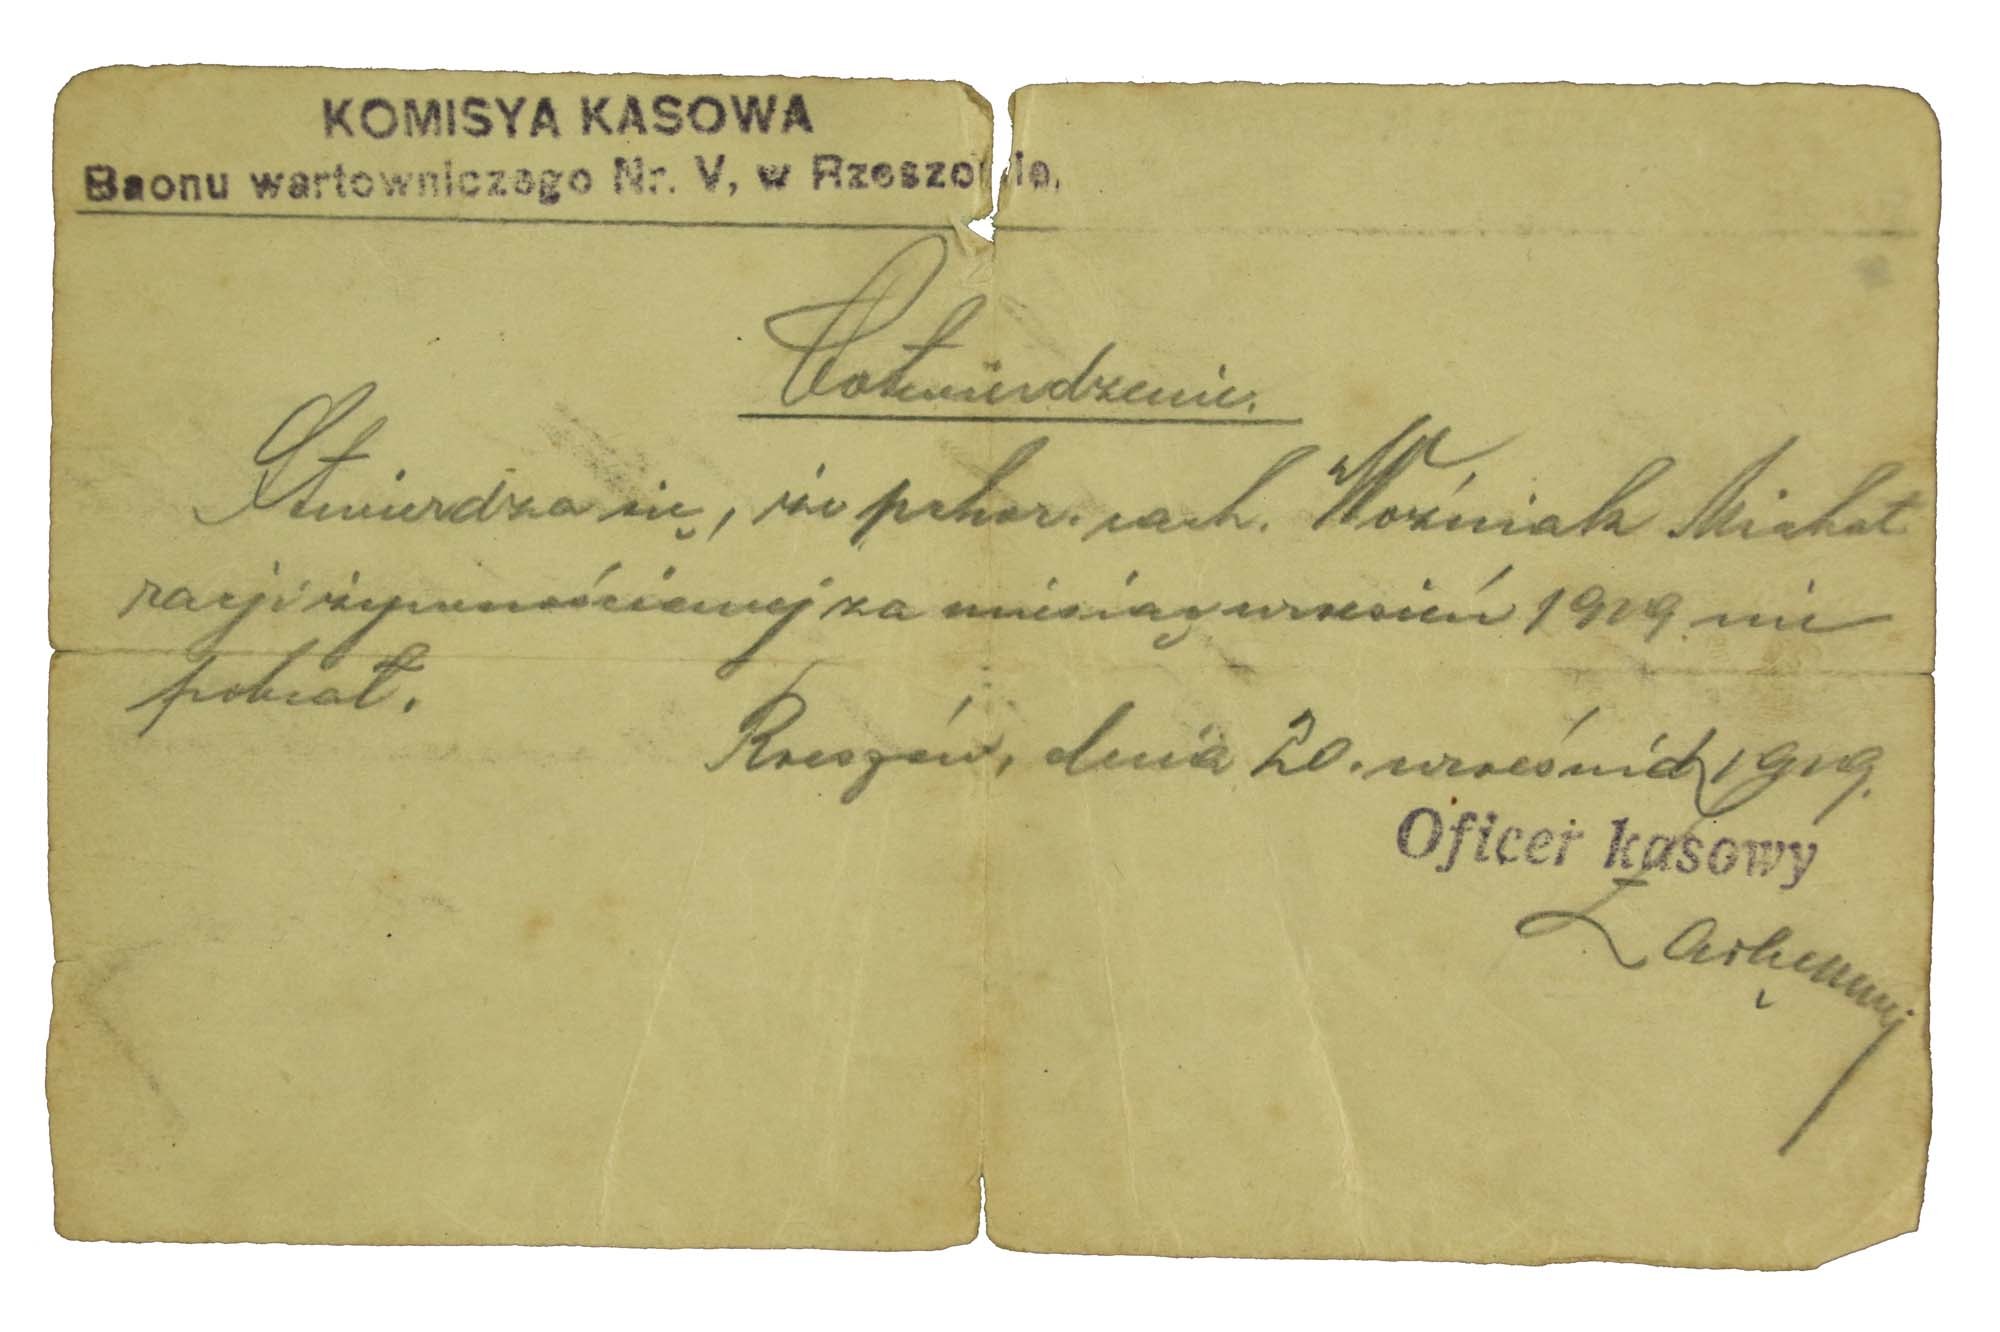 KOMISYA KASOWA
Baonu wartowniczego Nr. V, w Rzeszowie.
Potwierdzenie.
Stwierdza się, że pchor. rach. Woźniak Michał
racji żywnościowej za miesiąc wrzesień 1919 nie
pobrał.
Rzeszów, dnia 20. września 1919.
Oficer kasowy